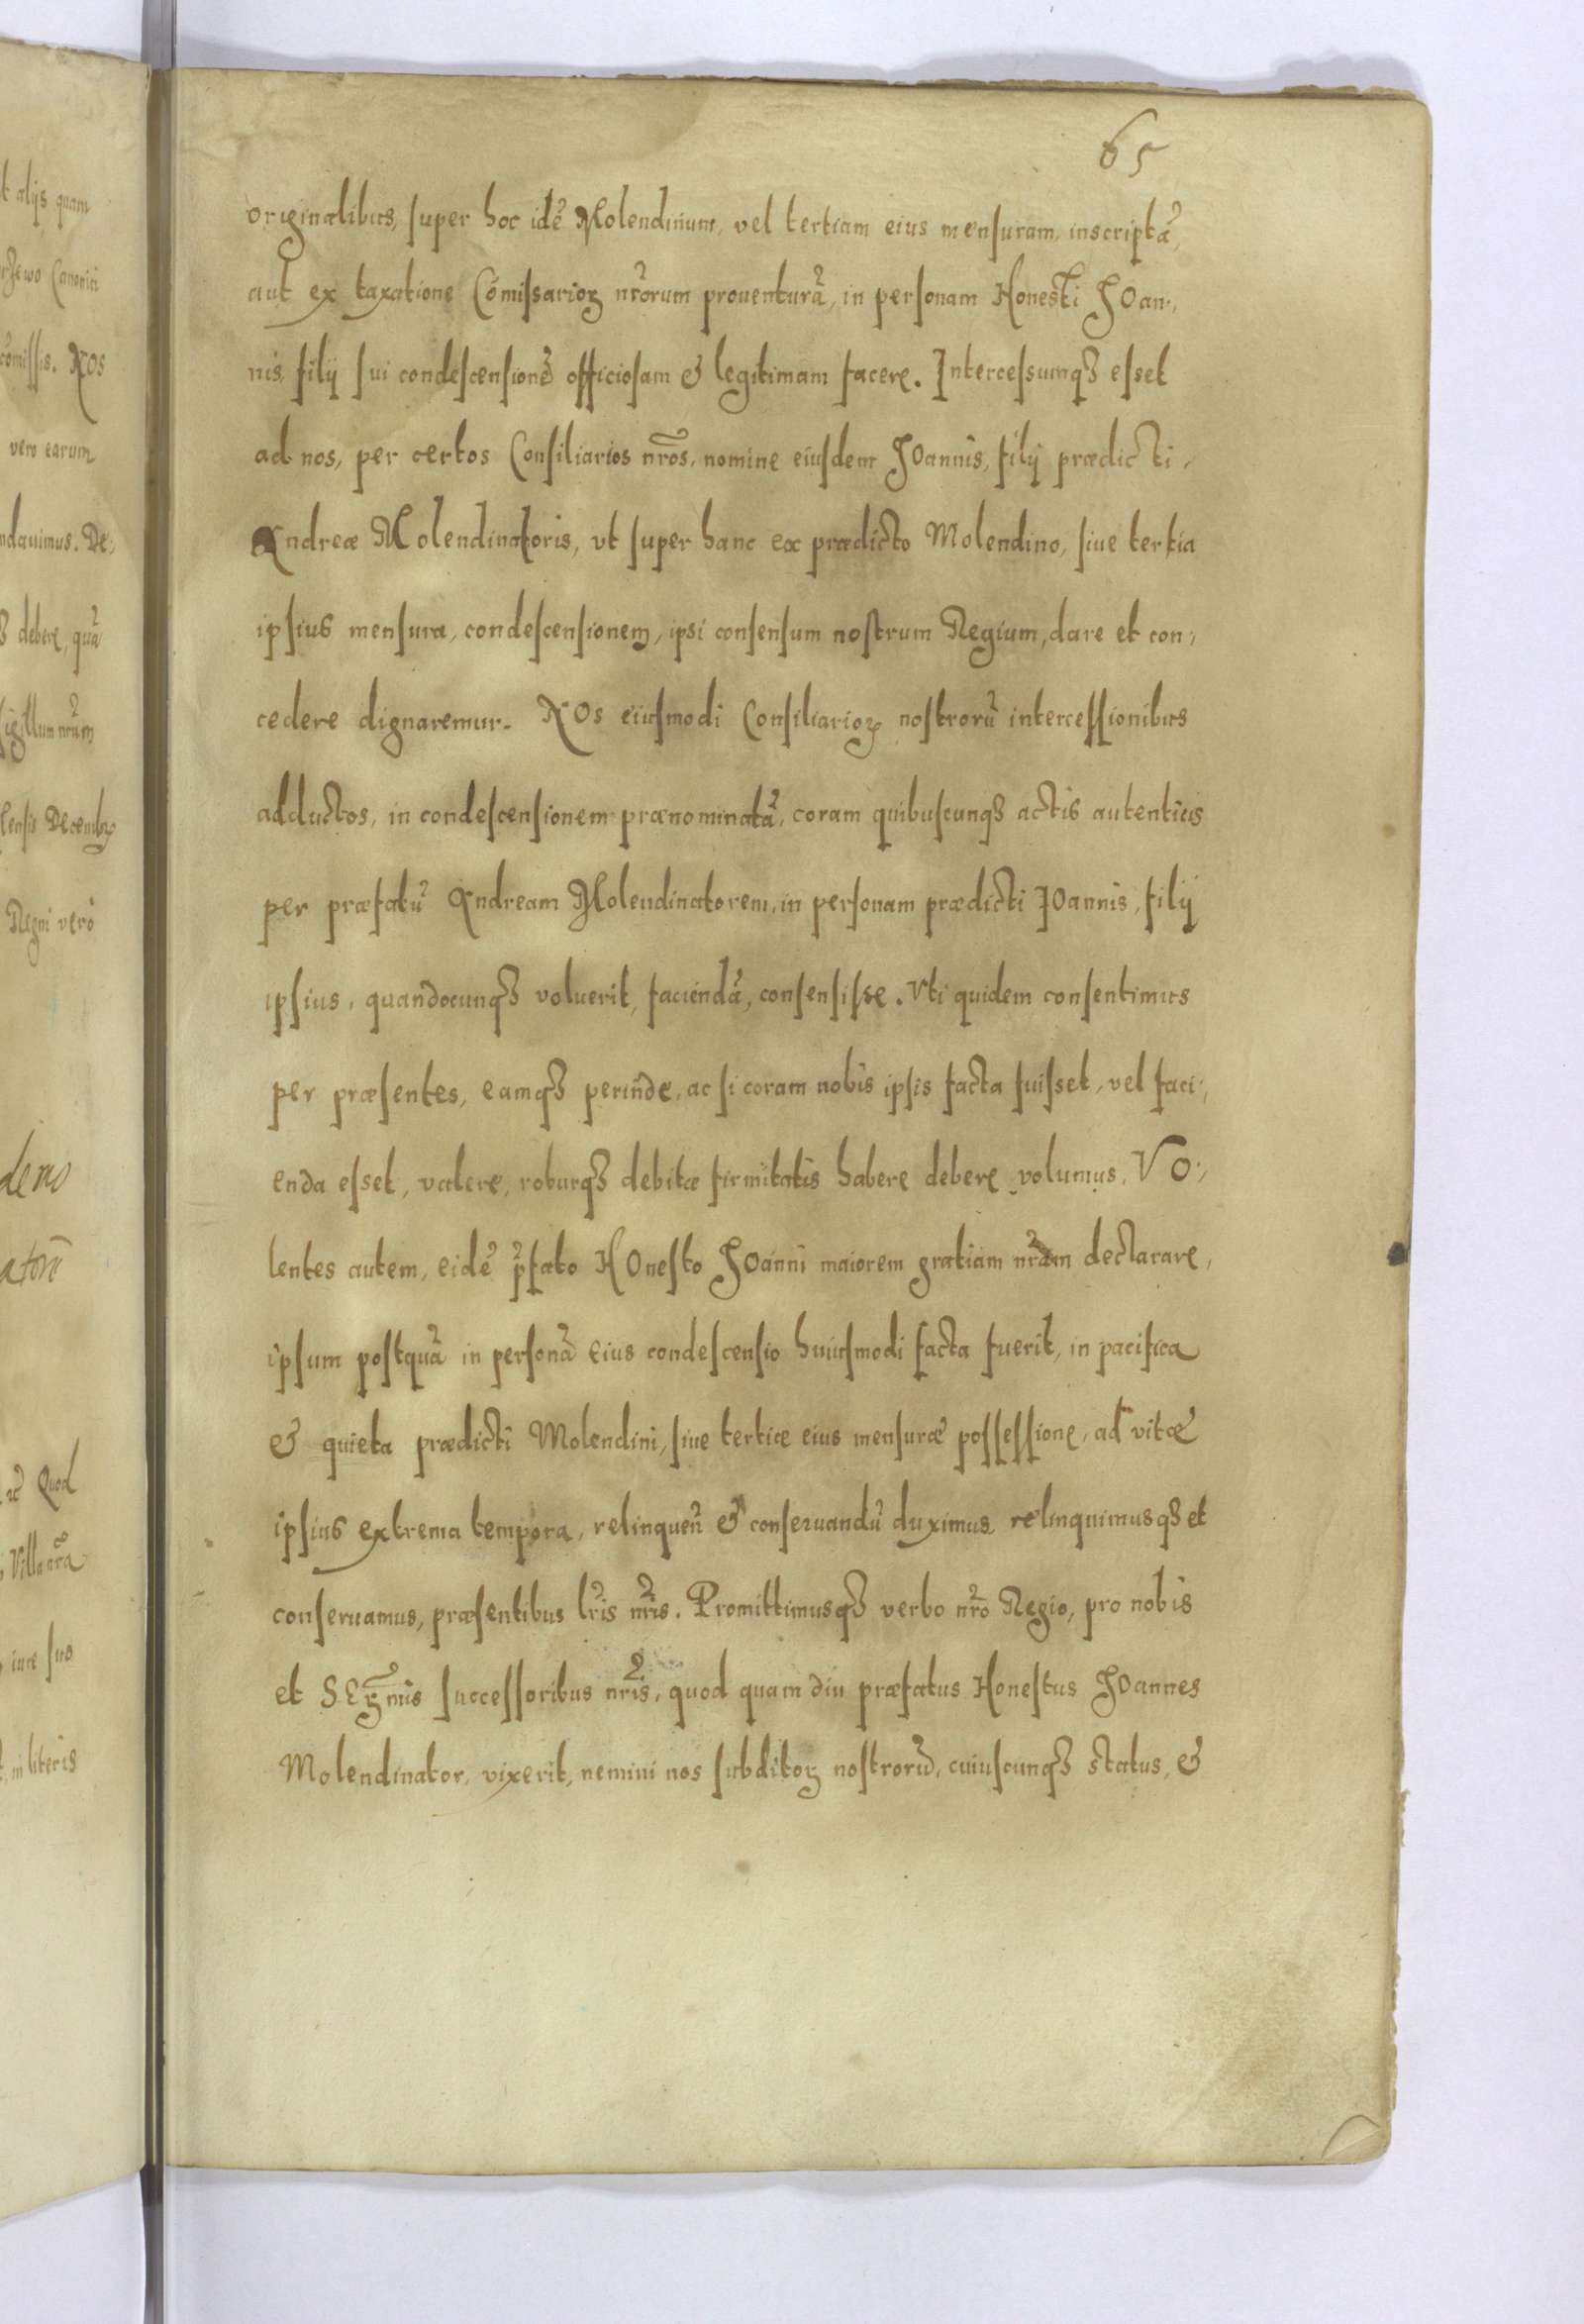 65
originalibus, super hoc idẽ Molendinum, vel tertiam eius mensuram, inscriptã,
aut ex taxatione Cõmissarioꝝ nr̃orum prouenturã, in personam Honesti JOan-,
nis, filÿ sui condescensionẽ officiosam & legitimam facere. Intercessumqꝫ esset
ad nos, per certos Consiliarios nr̃os, nomine eiusdem JOannis, filÿ prædicti,
Andreæ Molendinatoris, vt super hanc ex prædicto Molendino, siue tertia
ipsius mensura, condescensionem, ipsi consensum nostrum Regium, dare et con-,
cedere dignaremur. NOs eiusmodi Consiliarioꝝ nostrorũ intercessionibus
adductos, in condescensionem prænominatã, coram quibuscunqꝫ actis autenticis
per præfatũ Andream Molendinatorem, in personam prædicti JOannis, filÿ
ipsius, quandocunqꝫ voluerit, faciendã, consensisse. Vti quidem consentimus
per præsentes, eamqꝫ perinde, ac si coram nobis ipsis facta fuisset, vel faci-,
enda esset, valere, roburqꝫ debitæ firmitatis habere debere volumus. VO-,
lentes autem, eidẽ p̃fato HOnesto JOanni maiorem gratiam nr̃am declarare,
ipsum postquã in personã eius condescensio huiusmodi facta fuerit, in pacifica
& quieta prædicti Molendini, siue tertiæ eius mensuræ possessione, ad vitæ
ipsius extrema tempora, relinqueñ & conseruandũ duximus relinquimusqꝫ et
conseruamus, præsentibus lr̃is nr̃is. Promittimusqꝫ verbo nr̃o Regio, pro nobis
et SEr̃mis successoribus nr̃is, quod quam diu præfatus Honestus JOannes
Molendinator, vixerit, nemini nos subditoꝝ nostrorũ, cuiuscunqꝫ status, &